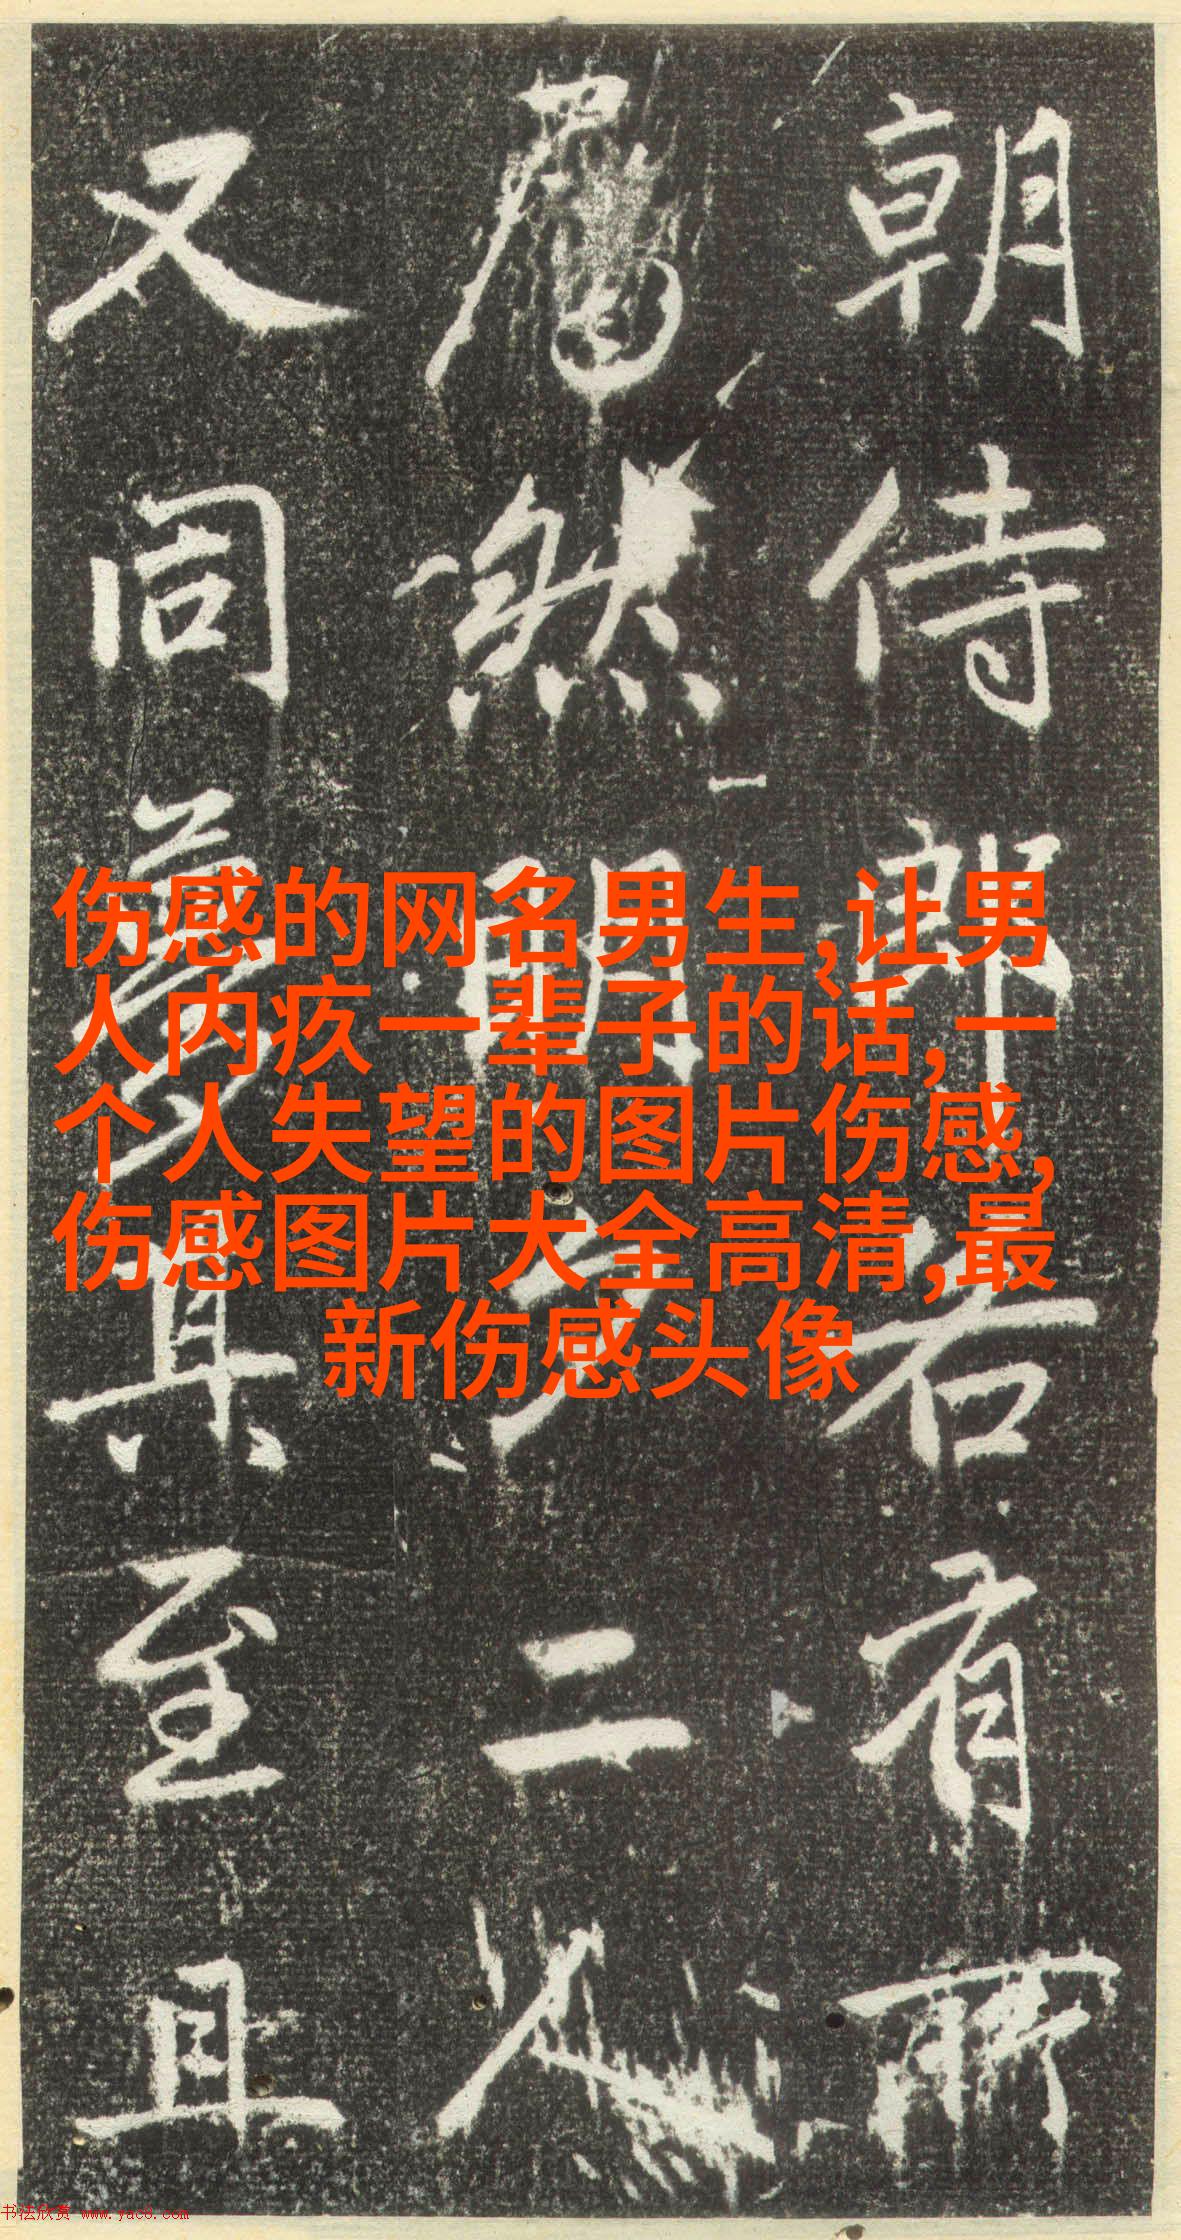 伤感的网名男生,让男
人内疚一辈子的话,一
个人失望的图片伤感,
伤感图片大全高清,最
新伤感头像
朝侍郎若有所
然明二人
又同具至且
书法欣赏 www.yac8.com